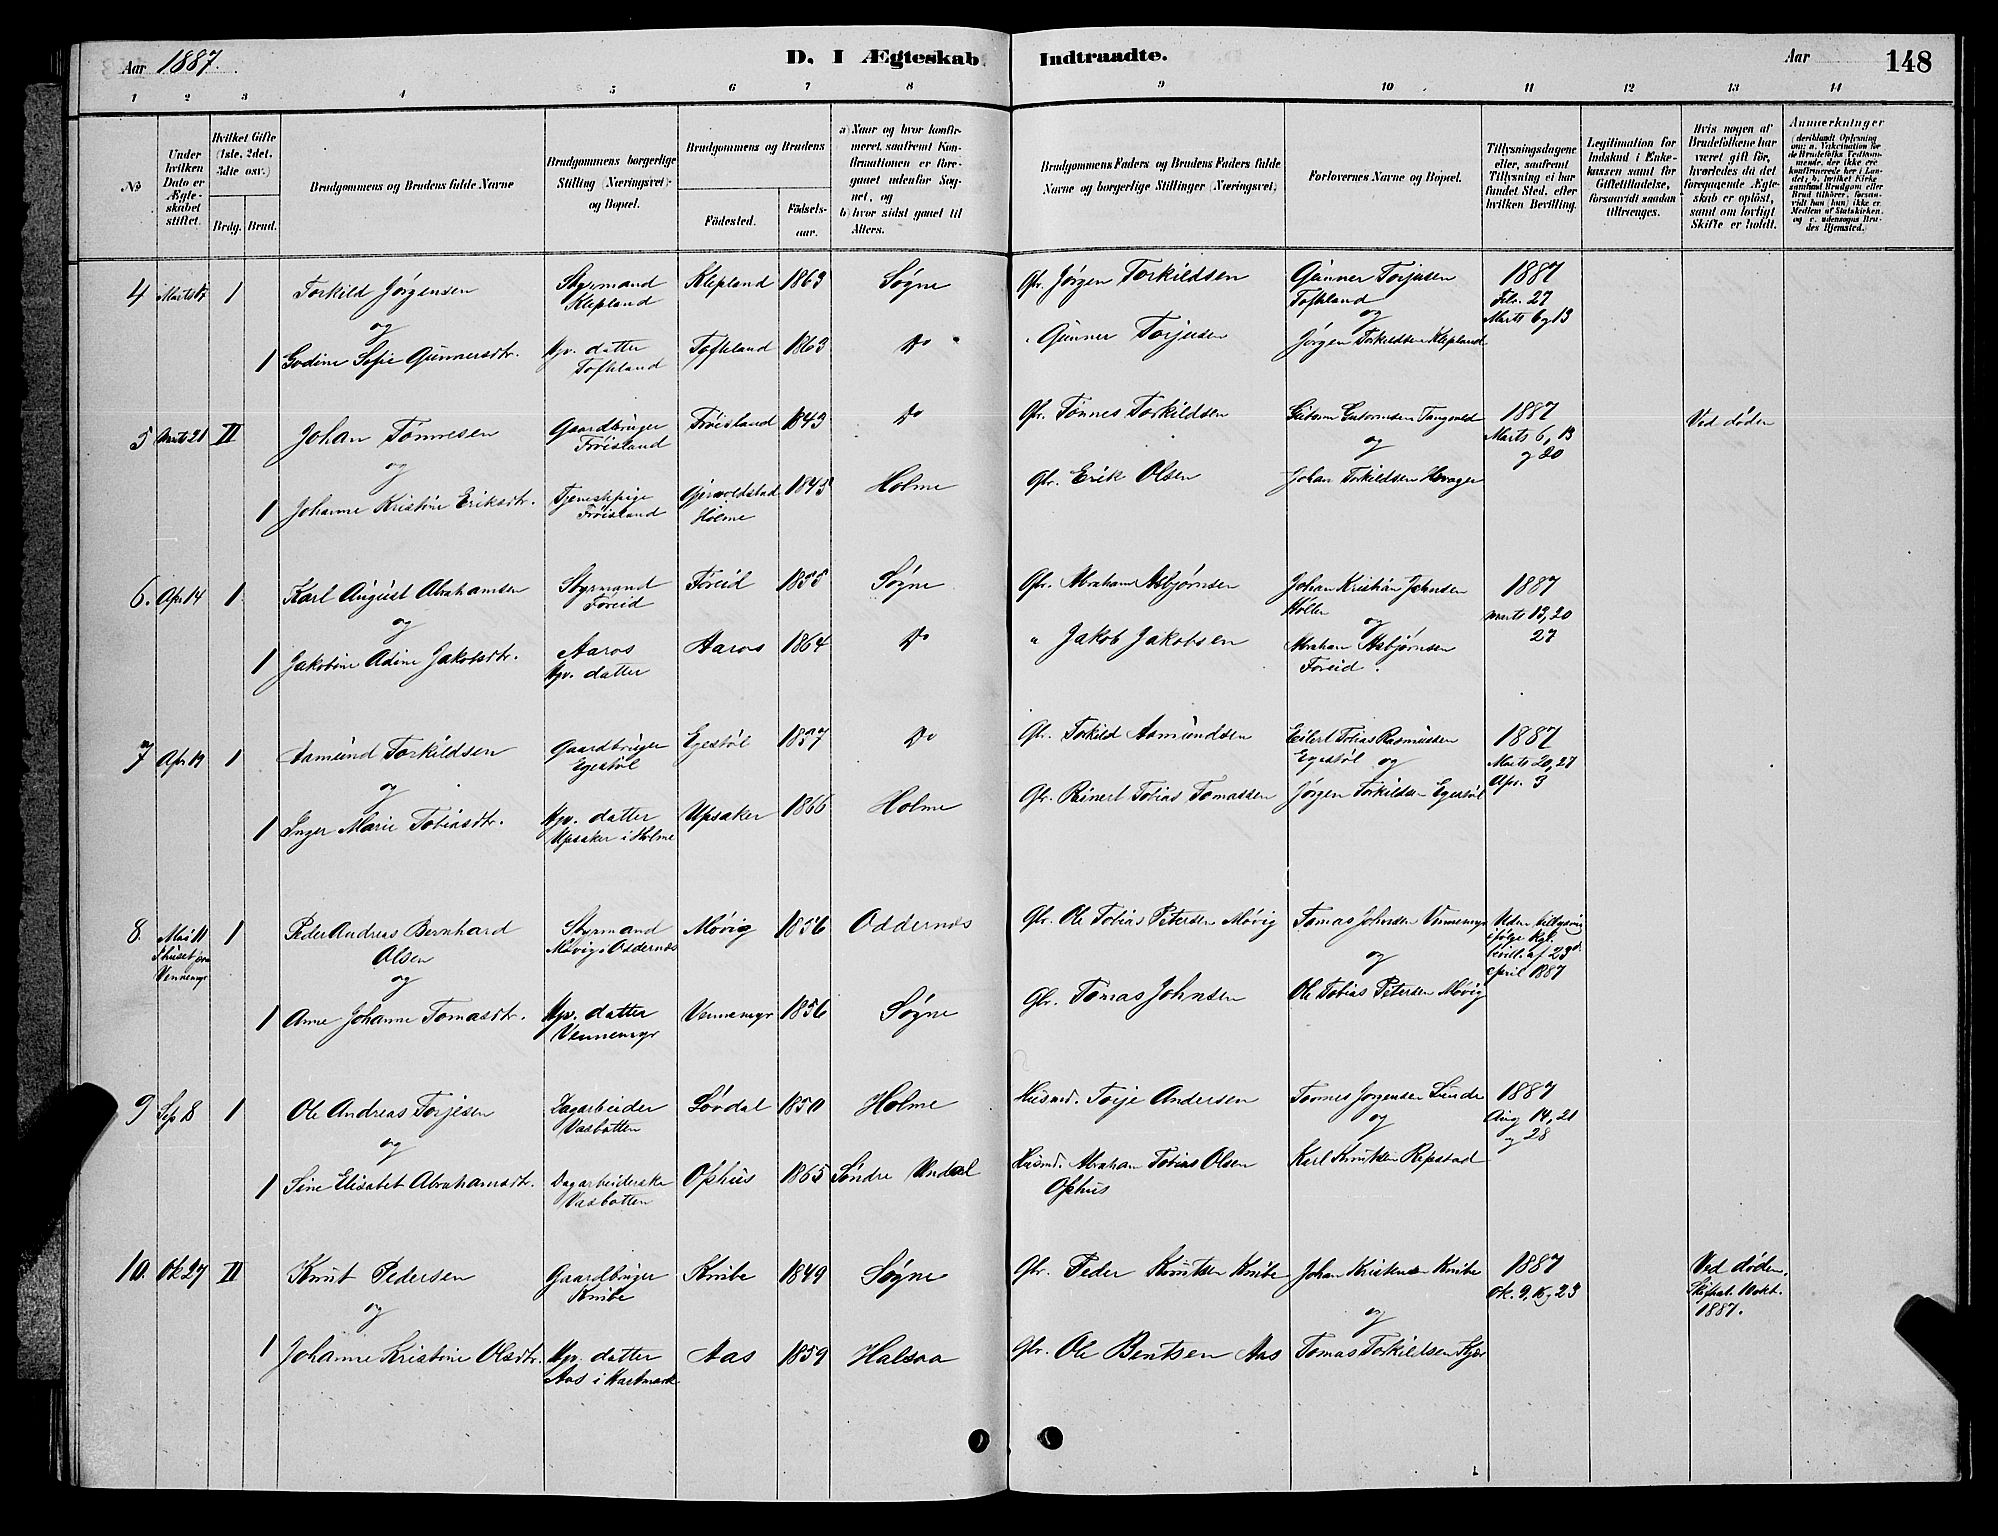 Aar 1887.
D. I Ægteskab
Indtraadte.
Aar
148
1 2 3 4 5 6 7 8
9 10 11 12 13 14
№
Under hvilken Dato er Ægteskabet stiftet.
Hvilket Gifte (1ste, 2det, 3dte osv.)
Brdg. Brud.
Brudgommens og Brudens fulde Navne
Brudgommens borgerlige Stilling (Næringsvei) og Bopæl.
Brudgommens og Brudens
Fødested.
Fødselsaar.
a) Naar og hvor konfirmeret, saafremt Konfirmationen er foregaaet udenfor Sognet, og
b) hvor sidst gaaet til Alters.
Brudgommens Faders og Brudens Faders fulde Navne og borgerlige Stillinger (Næringsvei).
Forlovernes Navne og Bopæl.
Tillysningsdagene eller, saafremt Tillysning ei har fundet Sted, efter hvilken Bevilling.
Legitimation for Indskud i Enkekassen samt for Giftetilladelse, forsaavidt saadan tiltrænges.
Hvis nogen af Brudefolkene har været gift før, hvorledes da det foregaaende Ægteskab er opløst, samt om lovligt Skifte er holdt.
Anmærkninger (deriblandt Oplysning om: a. Vakcination for de Brudefolks Vedkommende, der ikke ere konfirmerede her i Landet; b. hvilket Kirkesamfund Brudgom eller Brud tilhører, forsaavidt han (hun) ikke er Medlem af Statskirken, og c. udensogns Brudes Hjemsted.)
4 Marts 17 1 Torkild Jørgensen Styrmand Klepland Klepland 1863 Søgne Gbr. Jørgen Torkildsen Gunner Torjusen Tofteland 1887 Febr. 27 Marts 6 og 13
og og
1 Godine Sofie Gunnersdtr. Hjv. datter Toftland Toftland 1863 Do " Gunner Torjusen Jørgen Torkildsen Klepland
5 Marts 21 II Johan Tønnesen Gaardbruger Frøisland Frøisland 1843 Do Gbr. Tønnes Torkildsen Gutorm Gutormsen Tangvald 1887 Marts 6, 13 og 20 Ved døden
og og
1 Johanne Kristine Eriksdtr. Tjenestepige Frøisland Gjervoldstad Holme 1845 Holme Gbr. Erik Olsen Johan Torkildsen Hovager
6. Apr 14 1 Karl August Abrahamsen Styrmand Toreid Toreid 1855 Søgne Gbr. Abraham Asbjørnsen Johan Kristian Johnsen Høllen 1887 Marts 13, 20 27
og og
1 Jakobine Adine Jakobsdtr. Aaros Hjv. datter Aaros 1864 Do " Jakob Jakobsen Abraham Asbjørnsen Toreid.
7 Apr 19 1 Aamund Torkildsen Gaardbruger Egestøl Egestøl 1857 Do Gbr. Torkild Aamundsen Eilert Tobias Rasmussen Egestøl 1887 Marts 20, 27 Apr. 3
og og
1 Inger Marie Tobiasdtr. Hjv. datter Upsaker i Holme Upsaker 1866 Holme Gbr. Reinert Tobias Tomassen Jørgen Torkildsen Egestøl
8. Mai 11 I huset paa Vennemyr 1 Peder Andreas Bernhard Olsen Styrmand Møvig i Oddernæs Møvig 1856 Oddernæs Gbr. Ole Tobias Petersen Møvig Tomas Johnsen Vennemyr Uden tillysning ifølge Kgl. bevill. af 23d. April 1887
og og
1 Anne Johanne Tomasdtr. Hjv. datter Vennemyr Vennemyr 1856 Søgne Gbr. Tomas Johnsen Ole Tobias Petersen Møvig
9 Sep 8 1 Ole Andreas Torjesen Dagarbeider Vasbotten Løvdal 1850 Holme Husmd. Torje Andersen Tønnes Jørgensen Lunde 1887 Aug 14, 21 og 28
og og
1 Sine Elisabet Abrahamsdtr. Dagarbeiderske Vasbotten Ophus 1865 Søndre Undal Husmd. Abraham Tobias Olsen Ophus Karl Knutsen Repstad
10. Ok 27 II Knut Pedersen Gaardbruger Knibe Knibe 1849 Søgne Gbr. Peder Knutsen Knibe Johan Kristensen Knibe 1887 Ok. 9, 16 og 23 Ved døden. Skifteat. 11 okt. 1887.
og og
1 Johanne Kristine Olsdtr. Hjv. datter Aas i Hartmark Aas 1859 Halsaa Gbr. Ole Bentsen Aas Tomas Torkildsen Kjær